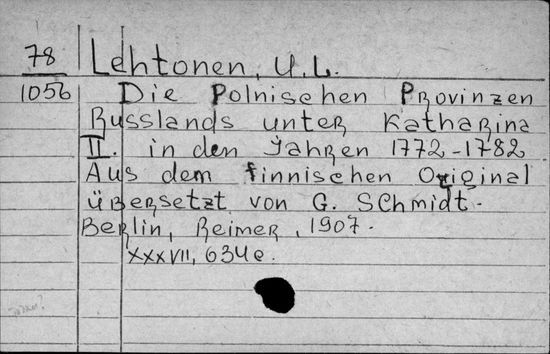 78 Lehtonen, U.L.
1056 Die Polnischen Provinzen
Russlands unter Katharina
II. in den Jahren 1772-1782
Aus dem finnischen Original
übersetzt von G. Schmidt.
Berlin, Reimer, 1907.
XXXVII, 634 e.